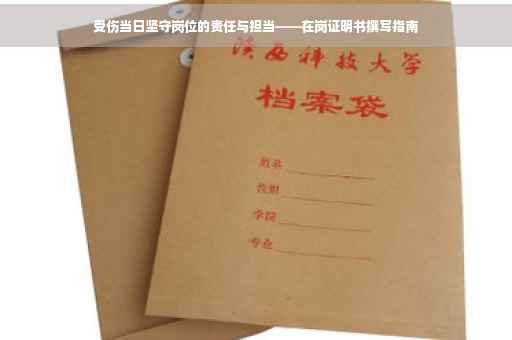 受伤当日坚守岗位的责任与担当——在岗证明书撰写指南
陕西科技大学
档案袋
姓名
学院
专业